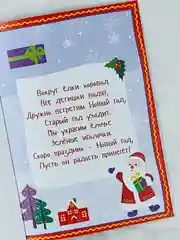 Вокруг ёлки хоровод
Все детишки
Дружно встретим Новый год,
Старый год уходит.
Мы украсим ёлочке
Зелёные иголочки.
Скоро праздник - Новый год,
Пусть он радость принесёт!